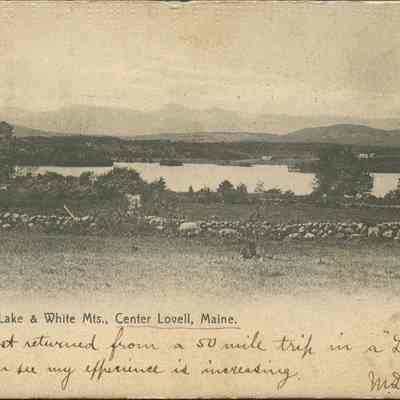 Lake & White Mts., Center Lovell, Maine.
st returned from a 50 mile trip in a "L
see my effperience is increasing.